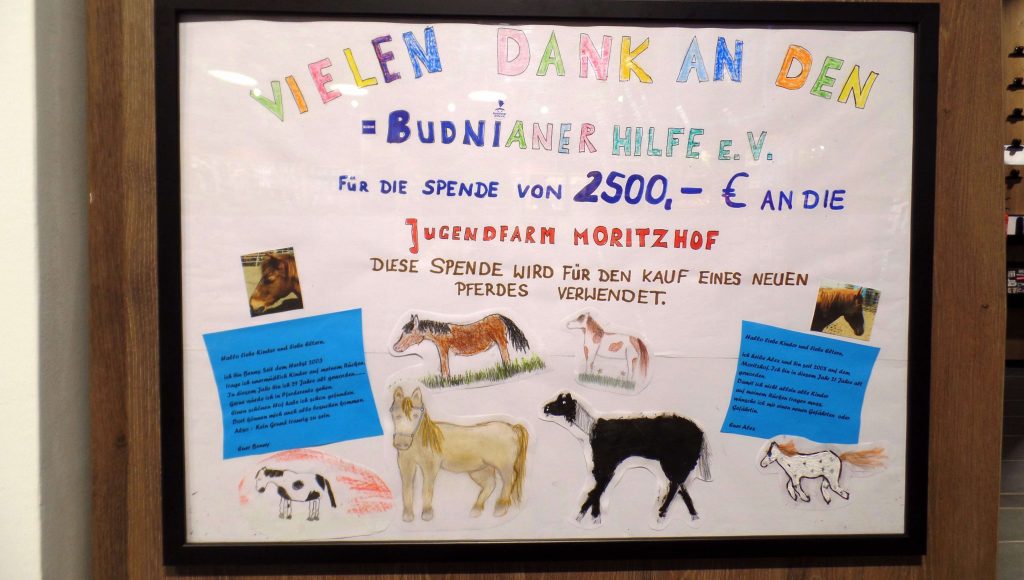 VIELEN DANK AN DEN
= BUDNIANER HILFE e.V.
FÜR DIE SPENDE VON 2500,- € AN DIE
JUGENDFARM MORITZHOF
DIESE SPENDE WIRD FÜR DEN KAUF EINES NEUEN
PFERDES VERWENDET.
Hallo liebe Kinder und liebe Eltern,
ich bin Benny. Seit dem Herbst 2003
trage ich unermüdlich Kinder auf meinem Rücken.
In diesem Jahr bin ich 29 Jahre alt geworden.....
Gerne würde ich in Pferderente gehen.
Einen schönen Hof habe ich schon gefunden.
Dort können mich auch alle besuchen kommen.
Also - Kein Grund traurig zu sein.
Euer Benny
Hallo liebe Kinder und liebe Eltern,
ich heiße Alex und bin seit 2005 auf dem
Moritzhof. Ich bin in diesem Jahr 21 Jahre alt
geworden.
Damit ich nicht allein alle Kinder
auf meinem Rücken tragen muss,
wünsche ich mir einen neuen Gefährten oder
Gefährtin.
Euer Alex